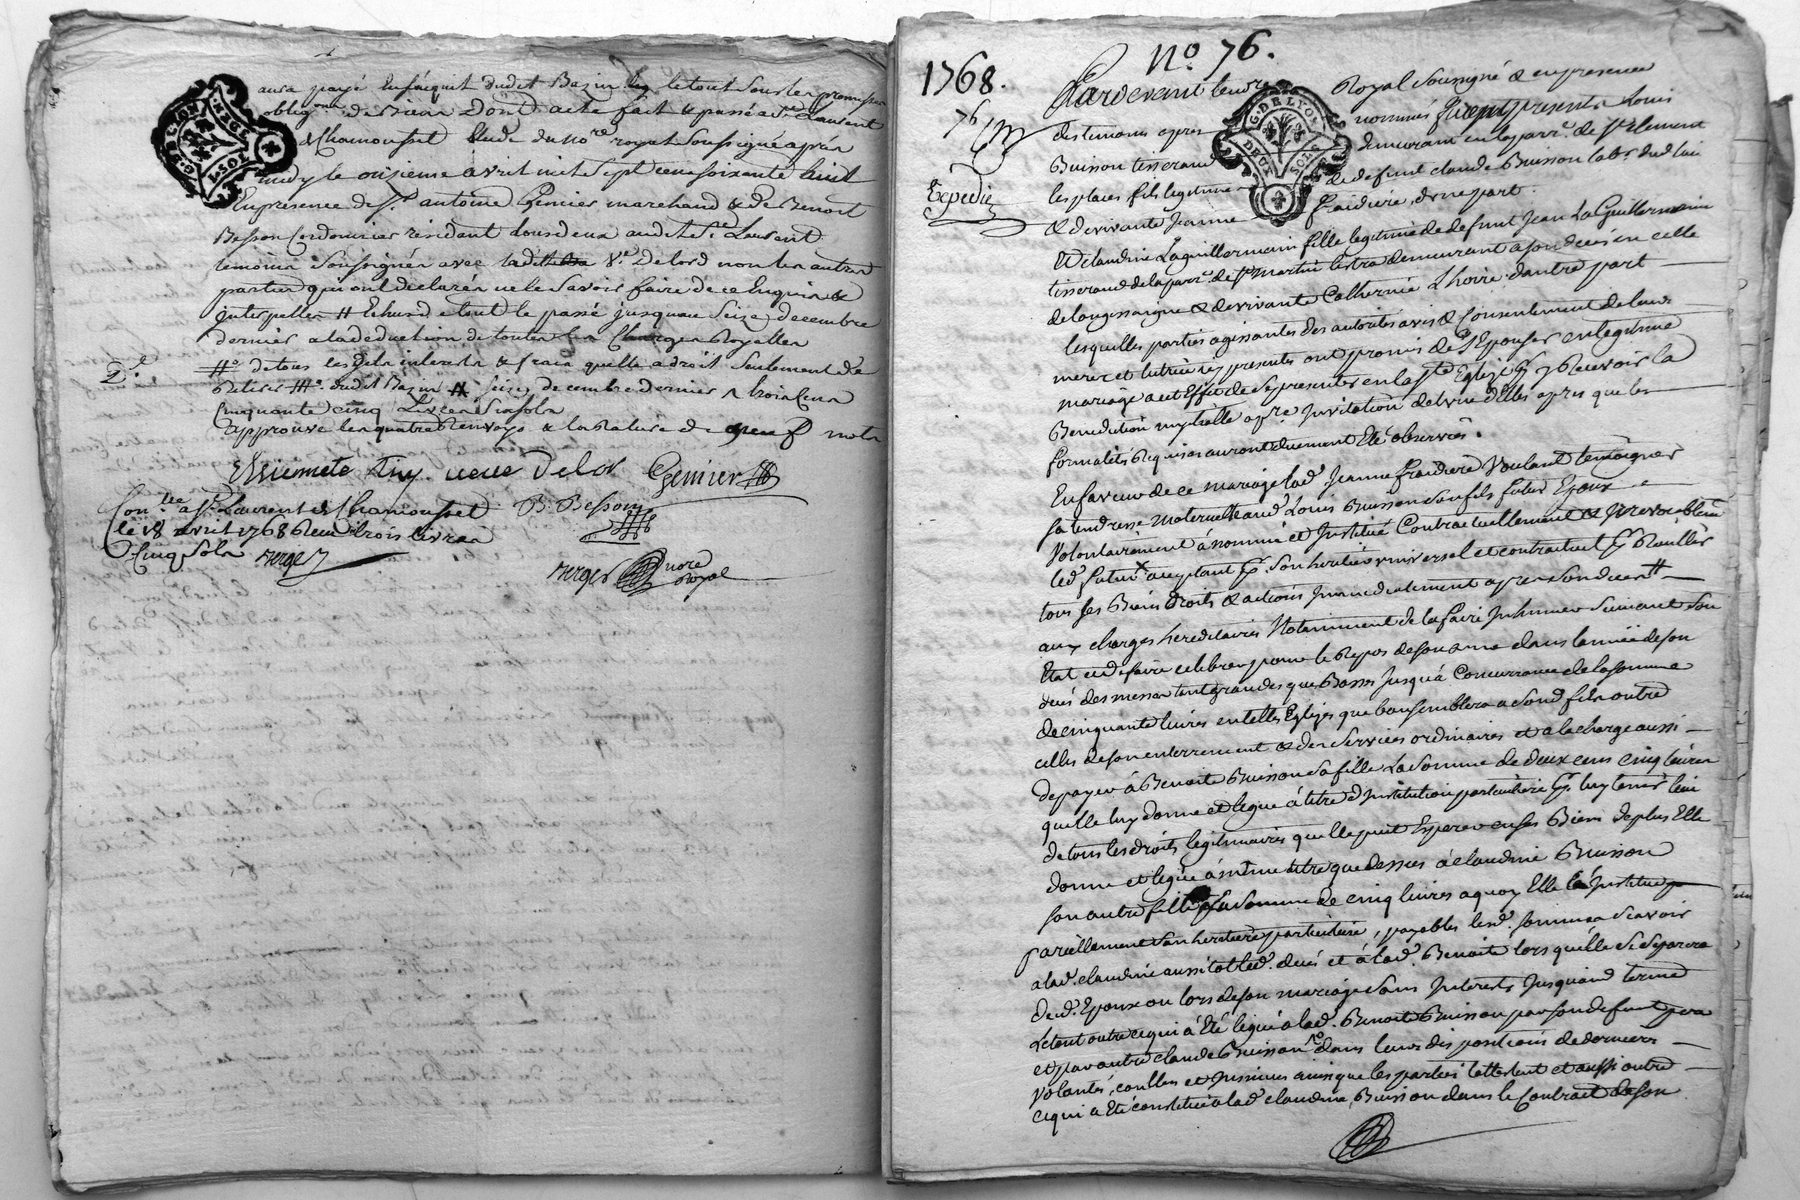 aura payé en l'acquit dudit Bazin le tout sous les promesses
oblig.ons de Biens Dont acte fait & passé a St. Laurent
de Chamousset Etude du nore. royal Soussigné après
midy le onsieme avril mil sept cens soixante huit
En presence de Sr. antoine Genier marchand & de Benoit
Besson Cordonnier résidant tous deux audit St. Laurent
temoins Soussignés avec ladite Ve. Delord non les autres
parties qui ont declarés ne le savoir faire de ce Enquis &
Interpellés # Echus de tout le passé jusques au seize decembre
dernier a la deduction de toutes les Charges Royalles
#o de tous les dits interests & frais quelle a droit Seulement de
dudit Bazin # seize decembre dernier a trois Cens
Cinquante cinq Livres six sols
approuvé les quatre Renvoys & la Rature de neuf mots
veuve Delor Genier
Conlée. a St. Laurent de Chamousset B. Besson
le 18 avril 1768 Reçu trois livres
Cinq Sols Verger
Verger nore
Royal
2.e
G. DE LYON
No. 76.
1768.
76
Expedié
G. DE LYON
DEUX SOLS
Pardevant le nore Royal Soussigné & en presence
des temoins apres nommés furent presents Louis
Buisson tisserand demeurant en la parr.e de St. Clement
les places fils legitime de defunt claude Buisson lab.r dud. lieu
& de vivante Jeanne fraidiere, d'une part.
Et claudine Laguillermain fille legitime de defunt Jean La Guillermain
tisserand de la parr.e de St. Martin lestra demeurant a son deces en celle
de longessaigne & de vivante Catherine Lhoire, dautre part
lesquelles parties agissantes des autorités avis & Consentement de leurs
meres et hutrieres presents ont promis de s'Epouser en legitime
mariage a cet Effet de se presenter en la Ste. Eglise pr. y Recevoir la
Benediction nuptialle apr.e Invitation de lun delles apres que les
formalités Requises auront duement Eté observées.
En faveur de ce mariage lad. Jeanne fraidiere Voulant temoigner
sa tendresse maternelle aud. Louis Buisson son fils futur Epoux
Volontairement à nommé et Institué Contractuellement & jrrevocablement
led. futur acceptant pr. son heritier universel et contractuel pr. Recuillir
tous ses Biens droits & actions Immediatement apres son deces #
aux charges hereditaires Notamment de la faire Inhumer Suivant son
Etat et de faire celebrer pour le Repos de son ame dans lannée de son
decés des messes tant grandes que Basses Jusqu'à Concurrance de la somme
de cinquante livres en telles Eglises que bon semblera a sond. fils outre
celles de son enterrement & des services ordinaires et a la charge aussi
de payer à Benoite Buisson sa fille La Somme de deux cens cinq livres
quelle luy donne et legue à titre d'Institution particuliere pr. luy tenir lieu
de tous les droits legitimaires quelle peut Esperer en ses Biens de plus Elle
donne et legue à même titre que dessus à claudine Buisson
son autre fille la Somme de cinq livres a quoy Elle la Institue
pareillement son heritiere particuliere, payables lesd. sommes Scavoir
a lad. claudine aussitot led. decés et à lad. Benoite lorsquelle se separera
dud. Epoux ou lors de son mariage sans Interets Jusquaud. terme
Le tout outre ce qui à Eté legué a lad. Benoite Buisson par son defunt pere
et par autre claude Buisson dans leurs dispositions de dernieres
Volontés, ainsi que les parties lattestent et aussi outre
ce qui a Eté constitué a lad. claudine Buisson dans le Contract de son